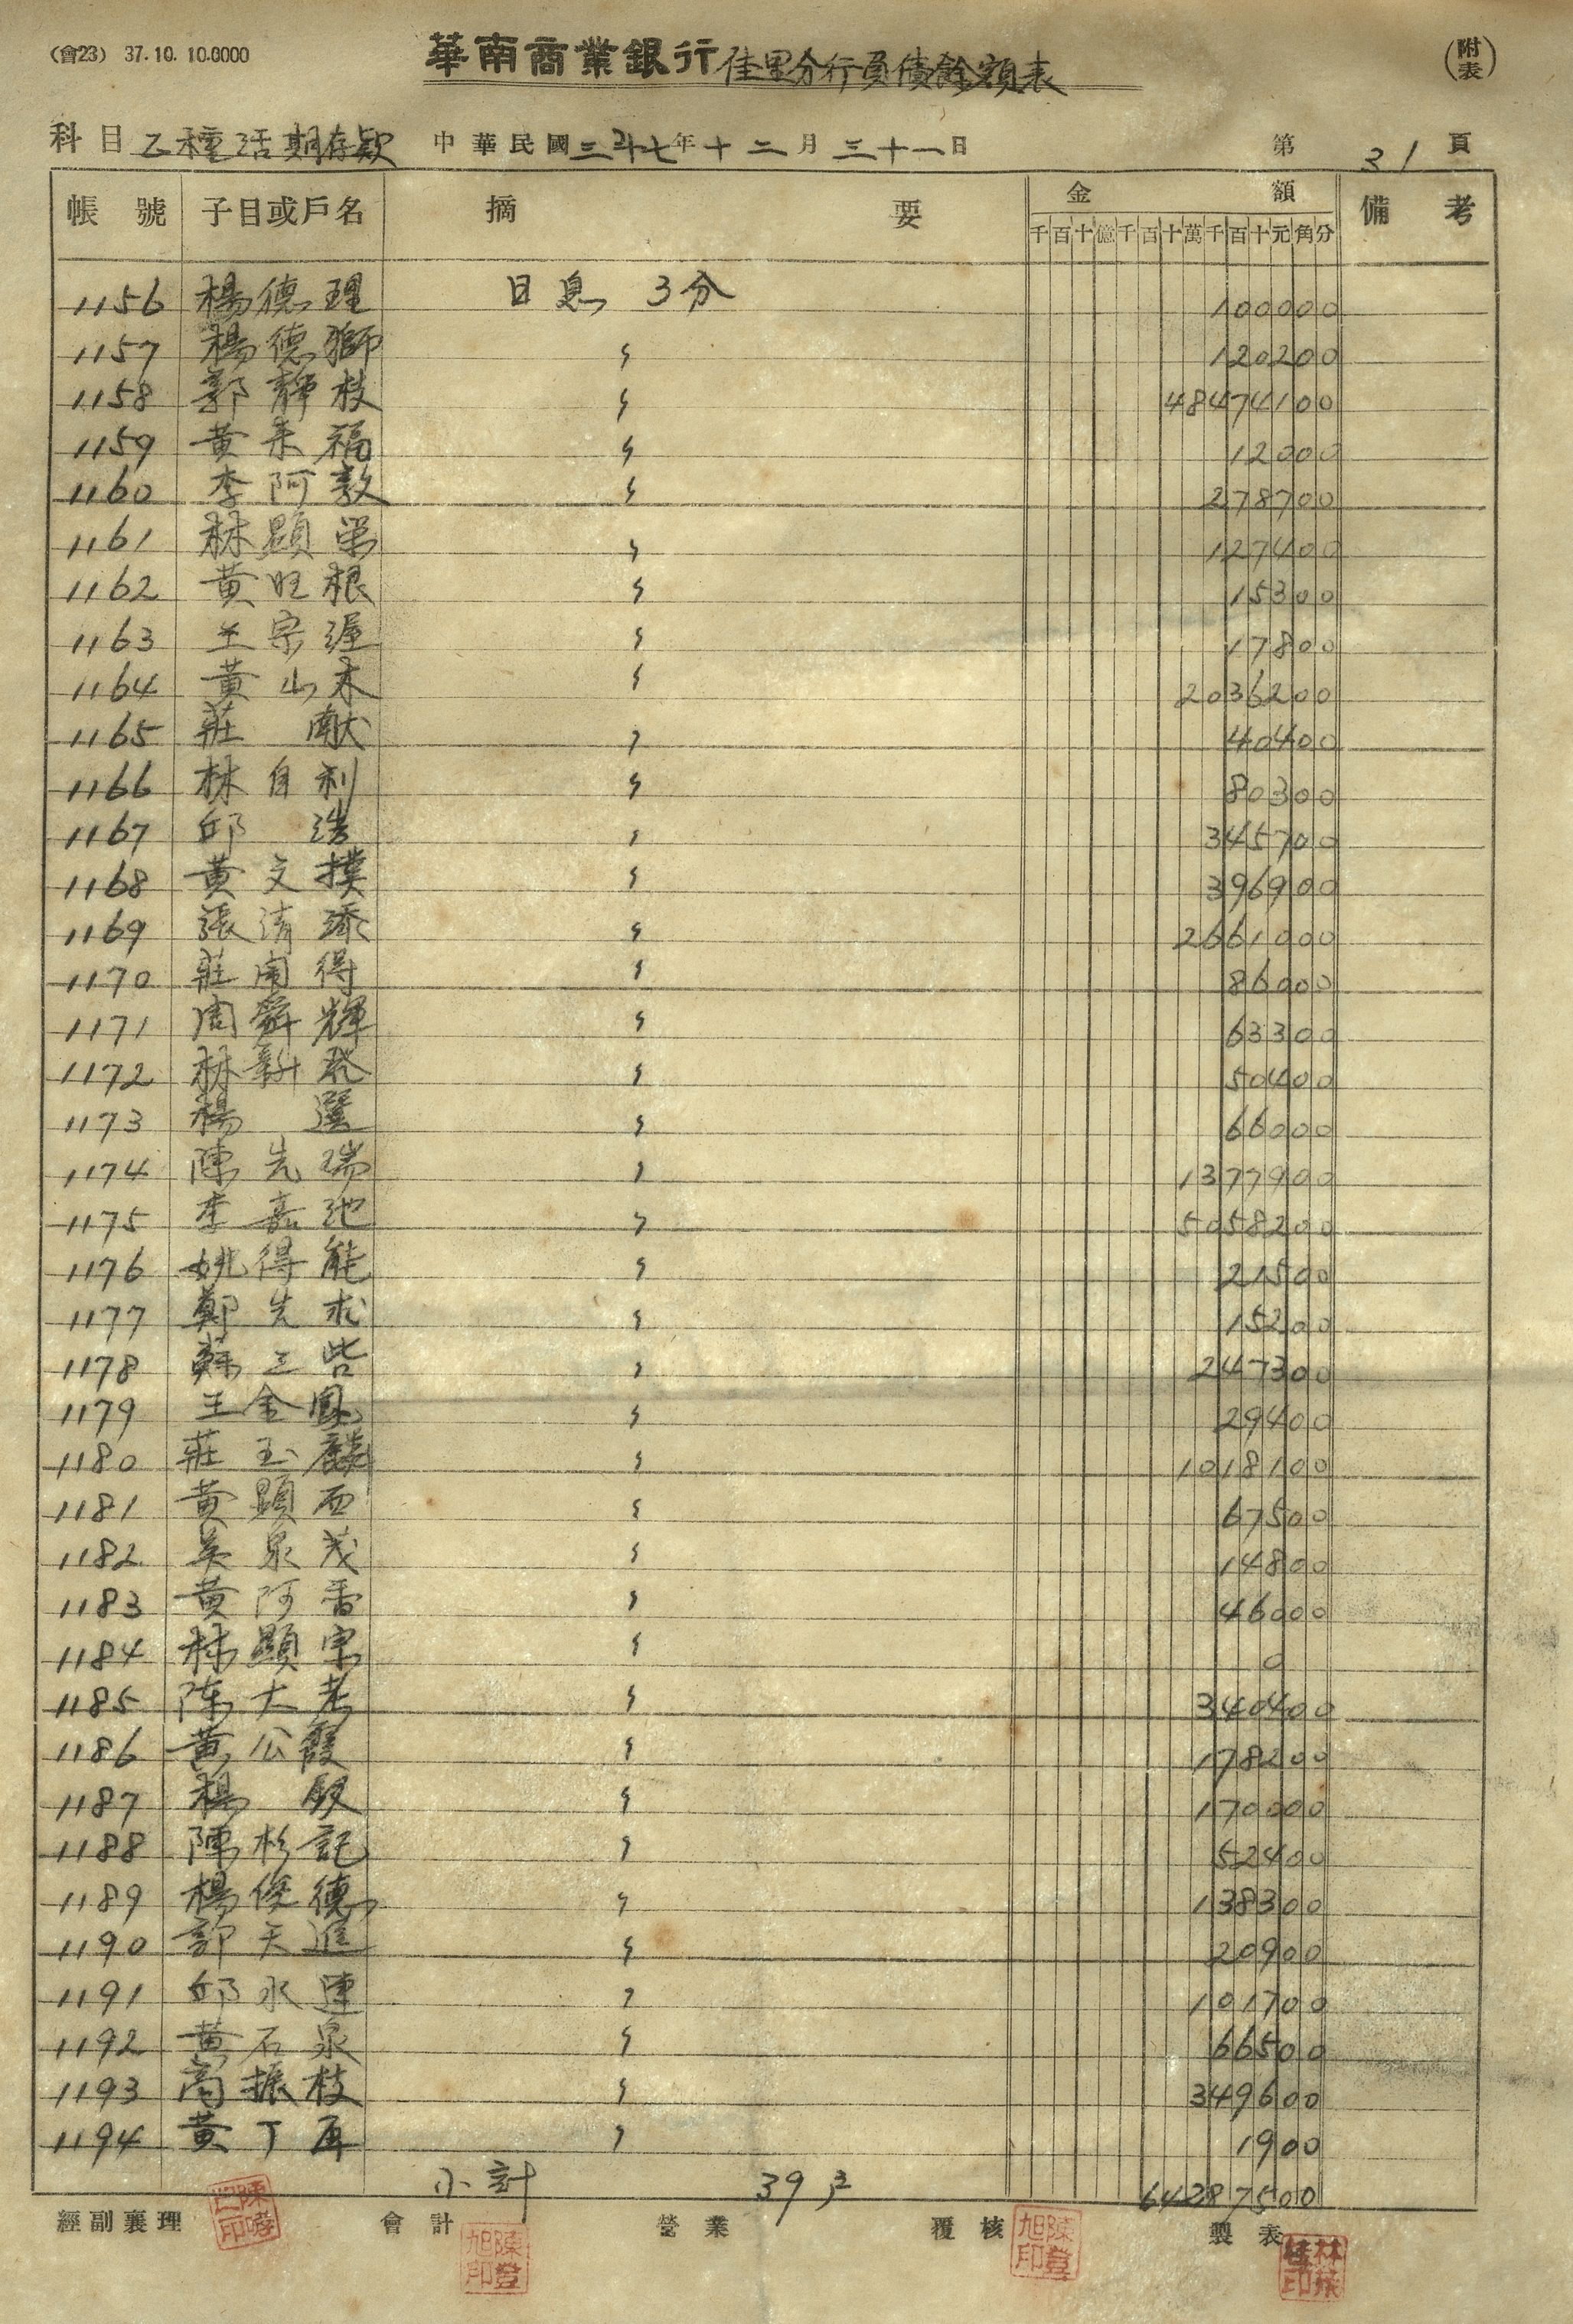 (會23) 37.10.10.0000
華南商業銀行佳里分行負債餘額表
(附表)
科目 乙種活期存款 中華民國三十七年十二月三十一日 第31頁
帳號 子目或戶名 摘要 金額 備考
千百十億千百十萬千百十元角分
1156 楊德理 日息 3分 100000
1157 楊德獅 〃 120200
1158 郭靜枝 〃 48474100
1159 黃来福 〃 12000
1160 李阿敦 〃 278700
1161 林顕栄 〃 127400
1162 黃旺根 〃 15300
1163 王宗渥 〃 17800
1164 黃山木 〃 2036200
1165 莊献 〃 40400
1166 林自利 〃 80300
1167 邱浩 〃 345700
1168 黃文撲 〃 396900
1169 張清添 〃 2661000
1170 莊闹得 〃 86000
1171 周舜輝 〃 63300
1172 林新發 〃 50400
1173 楊選 〃 66000
1174 陳先瑞 〃 1377900
1175 李嘉池 〃 5058200
1176 姚得能 〃 21500
1177 鄭先求 〃 15200
1178 蘇三皆 〃 247300
1179 王金鳳 〃 29400
1180 莊玉麟 〃 1018100
1181 黃顕西 〃 67500
1182 吳泉茂 〃 14800
1183 黃阿香 〃 46000
1184 林顕宗 〃 0
1185 陈大老 〃 340400
1186 黃公霞 〃 178200
1187 楊 〃 170000
1188 陳杉記 〃 52400
1189 楊俊德 〃 138300
1190 郭天進 〃 20900
1191 邱永連 〃 101700
1192 黃石泉 〃 66500
1193 高振枝 〃 349600
1194 黃丁再 〃 1900
小計 39戶 64287500
經副襄理 會計 營業 覆核 製表
陳登旭印
陳登旭印